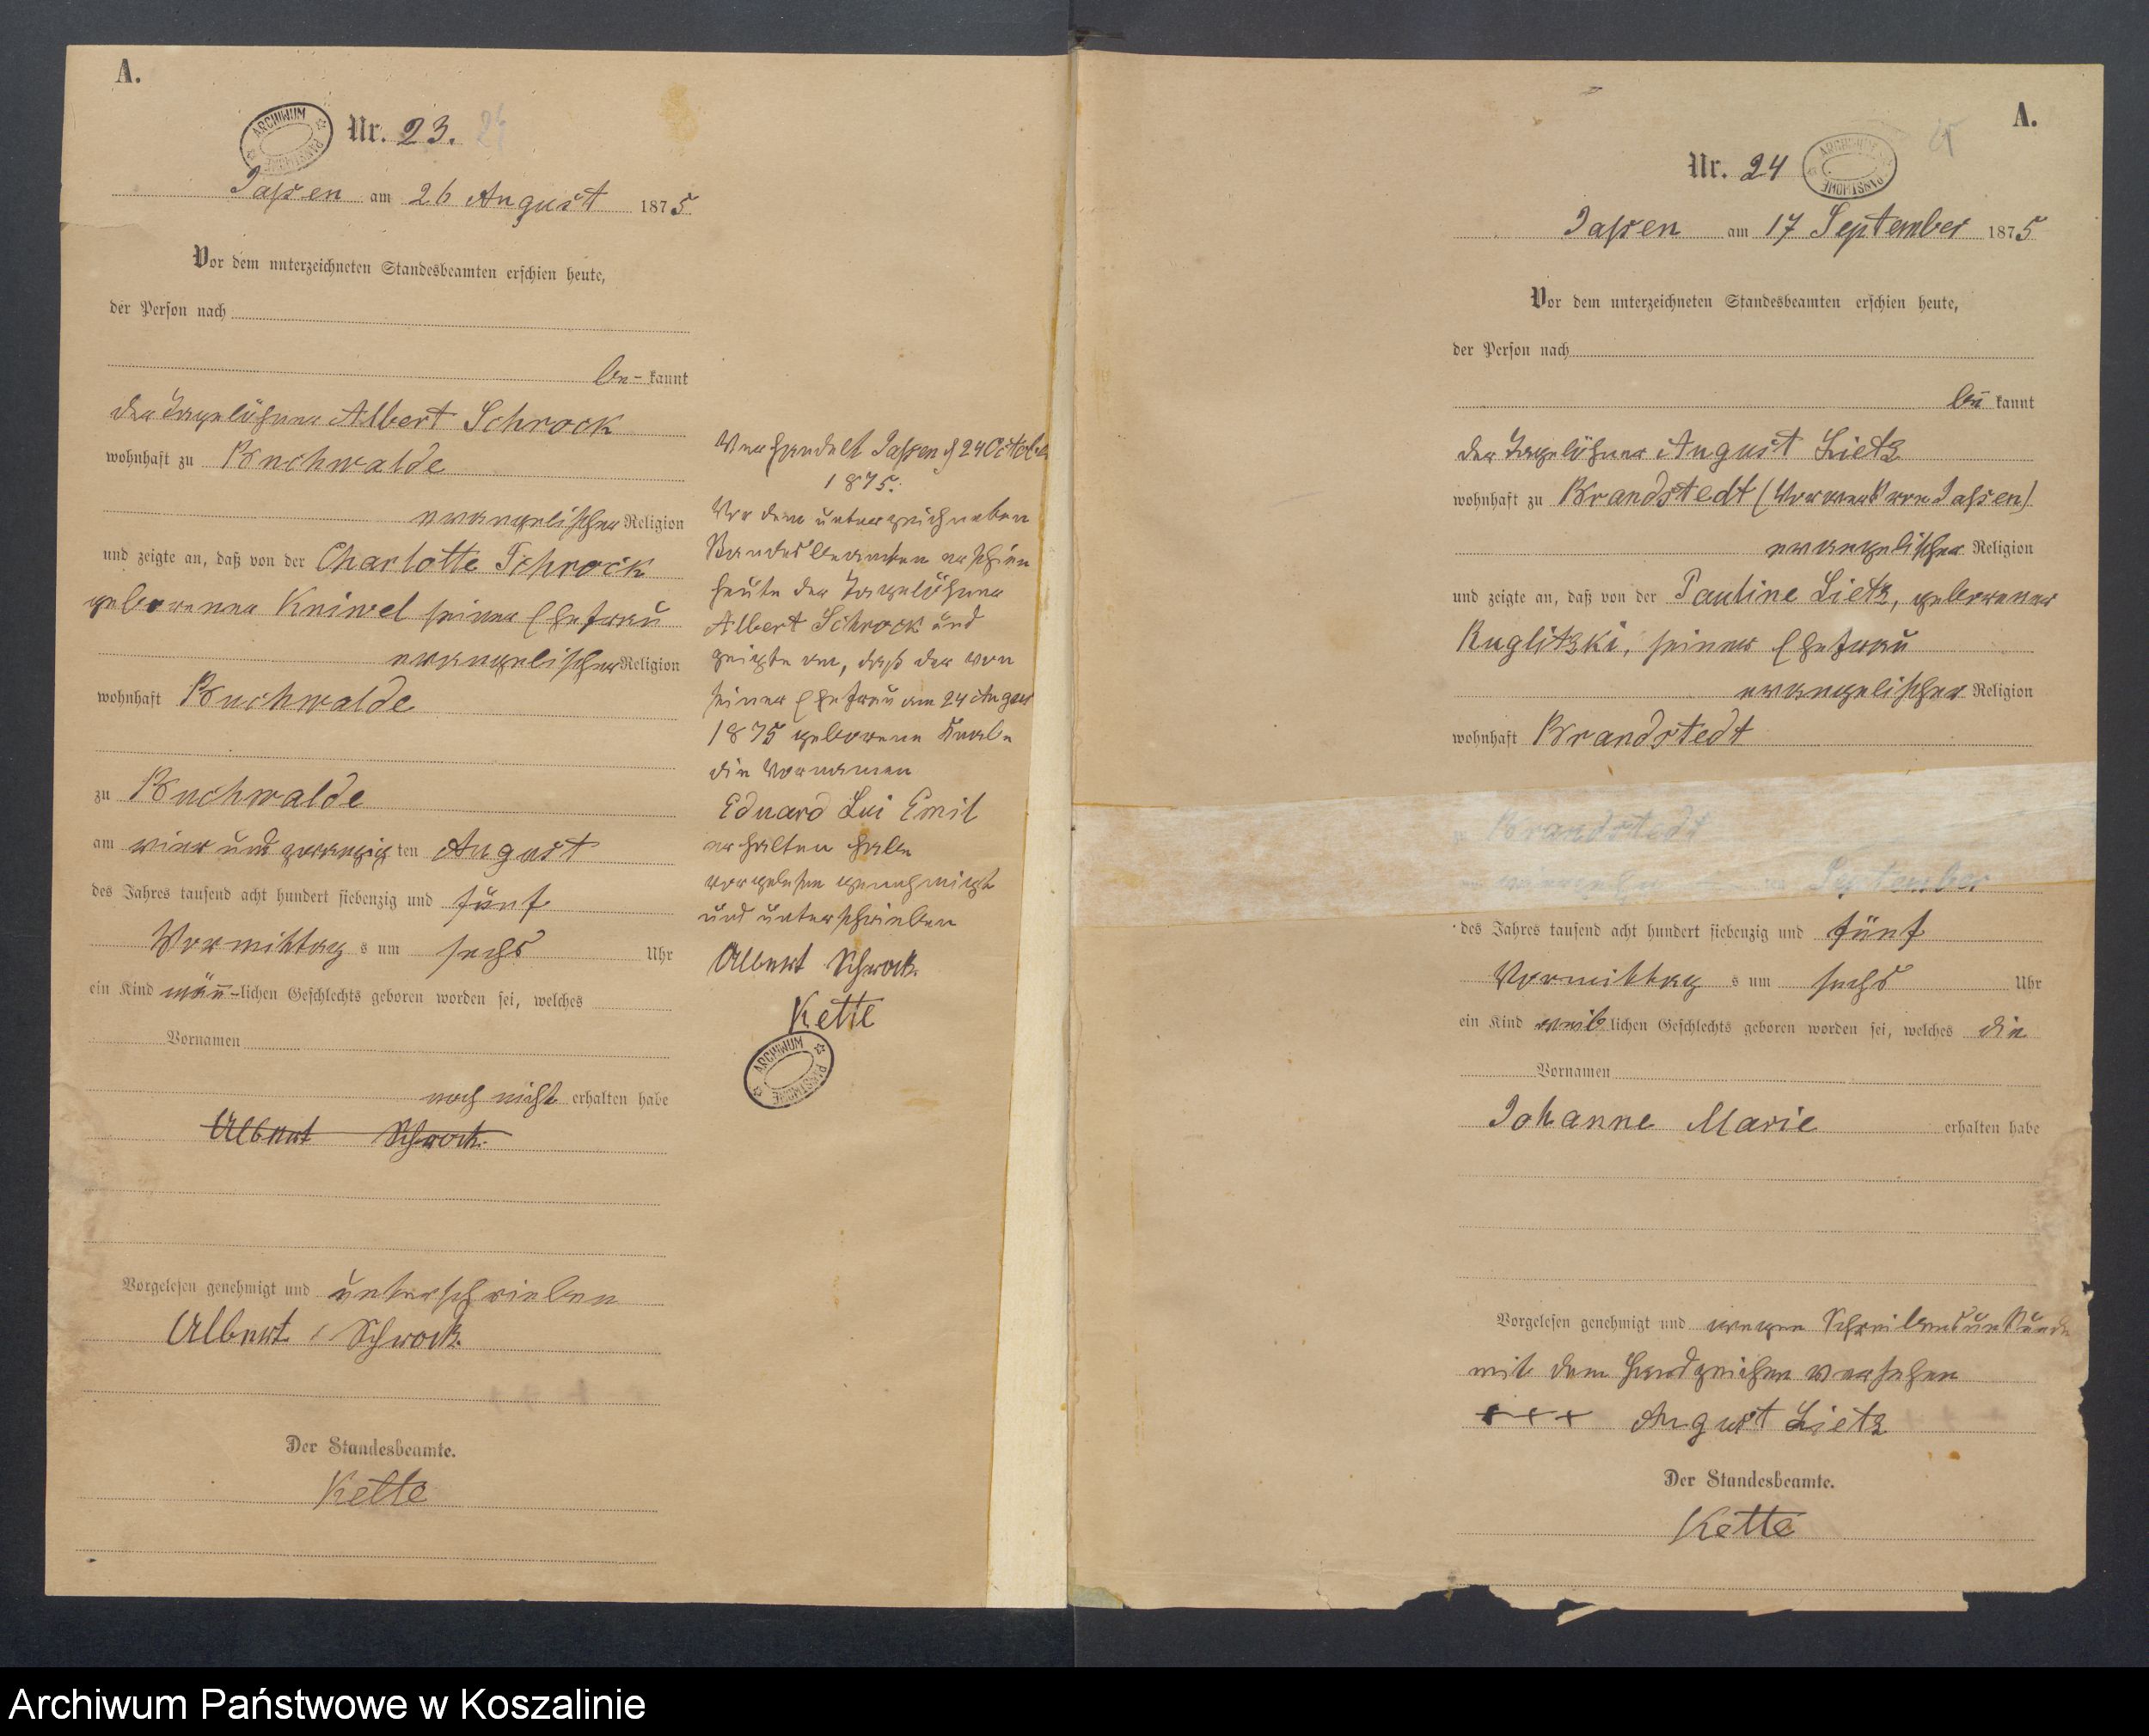 A.
Nr. 23. 24
ARCHIWUM PAŃSTWOWE
Jassen am 26 August 1875.
Vor dem unterzeichneten Standesbeamten erschien heute,
der Person nach
be- kannt
der Tagelöhner Albert Schrock
wohnhaft zu Buchwalde
evangelischer Religion
und zeigte an, daß von der Charlotte Schrock
geborenen Kniwel seiner Ehefrau
evangelischer Religion
wohnhaft Buchwalde
zu Buchwalde
am vier und zwanzig ten August
des Jahres tausend acht hundert siebenzig und fünf
Vormittag s um sechs Uhr
ein Kind män̄-lichen Geschlechts geboren worden sei, welches
Vornamen
noch nicht erhalten habe
Albert Schrock.
Vorgelesen genehmigt und unterschrieben
Albert Schrock
Der Standesbeamte.
Kette
Verhandelt Jassen d 24 October
1875.
Vor dem unterzeichneten
Standesbeamten erschien
heute der Tagelöhner
Albert Schrock und
zeigte an, daß der von
seiner Ehefrau am 24 August
1875 geborene Knabe
die Vornamen
Eduard Lui Emil
erhalten habe
vorgelesen genehmigt
und unterschrieben
Albert Schrock.
Kette
ARCHIWUM PAŃSTWOWE
A.
Nr. 24
ARCHIWUM PAŃSTWOWE
Jassen am 17 September 1875
Vor dem unterzeichneten Standesbeamten erschien heute,
der Person nach
be kannt
der Tagelöhner August Lietz
wohnhaft zu Brandstedt (Vorwerk von Jassen)
evangelischer Religion
und zeigte an, daß von der Pauline Lietz, geborener
Ruglitzki, seiner Ehefrau
evangelischer Religion
wohnhaft Brandstedt
zu Brandstedt
am vierzehn ten September
des Jahres tausend acht hundert siebenzig und fünf
Vormittag s um sechs Uhr
ein Kind weib lichen Geschlechts geboren worden sei, welches die
Vornamen
Johanne Marie erhalten habe
Vorgelesen genehmigt und wegen Schreibensunkunde
mit dem Handzeichen versehen
+++ August Lietz
Der Standesbeamte.
Kette
Archiwum Państwowe w Koszalinie